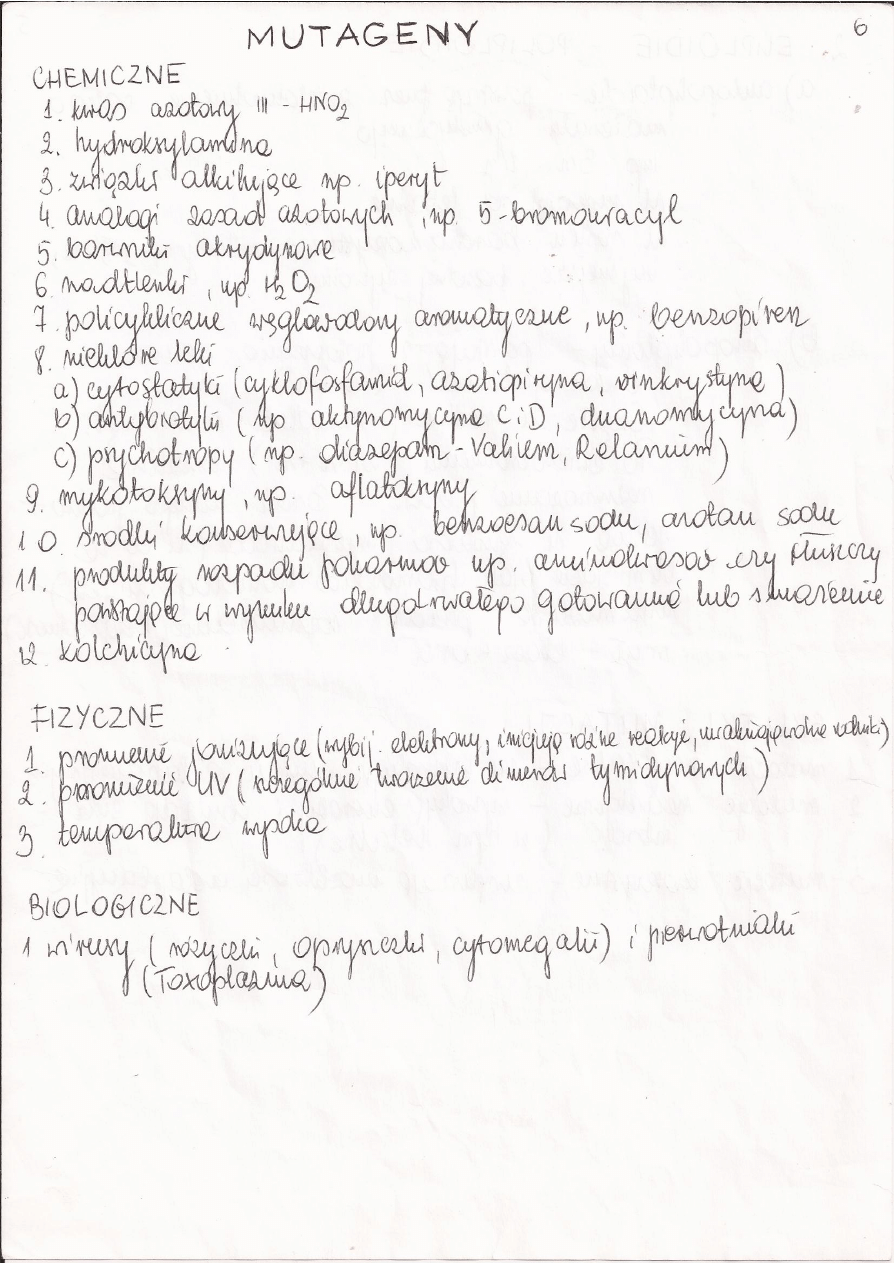 6
MUTAGENY
CHEMICZNE
1. kwas azotowy III - HNO2
2. hydroksylamina
3. związki alkilujące np. iperyt
4. analogi zasad azotowych, np. 5-bromouracyl
5. barwniki akrydynowe
6. nadtlenki, np. H2O2
7. policykliczne węglowodory aromatyczne, np. benzopiren
8. niektóre leki
a) cytostatyki (cyklofosfamid, azatiopiryna, winkrystyna)
b) antybiotyki (np aktynomycyna C i D, duanomycyna)
c) psychotropy (np. diazepam - Valium, Relanium)
9. mykotoksyny, np. aflatoksyny
10. środki konserwujące, np. benzoesan sodu, azotan sodu
11. produkty rozpadu pokarmów np. aminokwasów czy tłuszczy
powstające w wyniku długotrwałego gotowania lub smażenia
12. kolchicyna
FIZYCZNE
1. promienie jonizujące (wybij. elektrony, inicjują różne reakcje, uwalniają wolne rodniki)
2. promienie UV (szczególnie tworzenie dimerów tymidynowych)
3. temperatura wysoka
BIOLOGICZNE
1 wirusy (różyczki, opryszczki, cytomegalii) i pierwotniaki
(Toxoplasma)